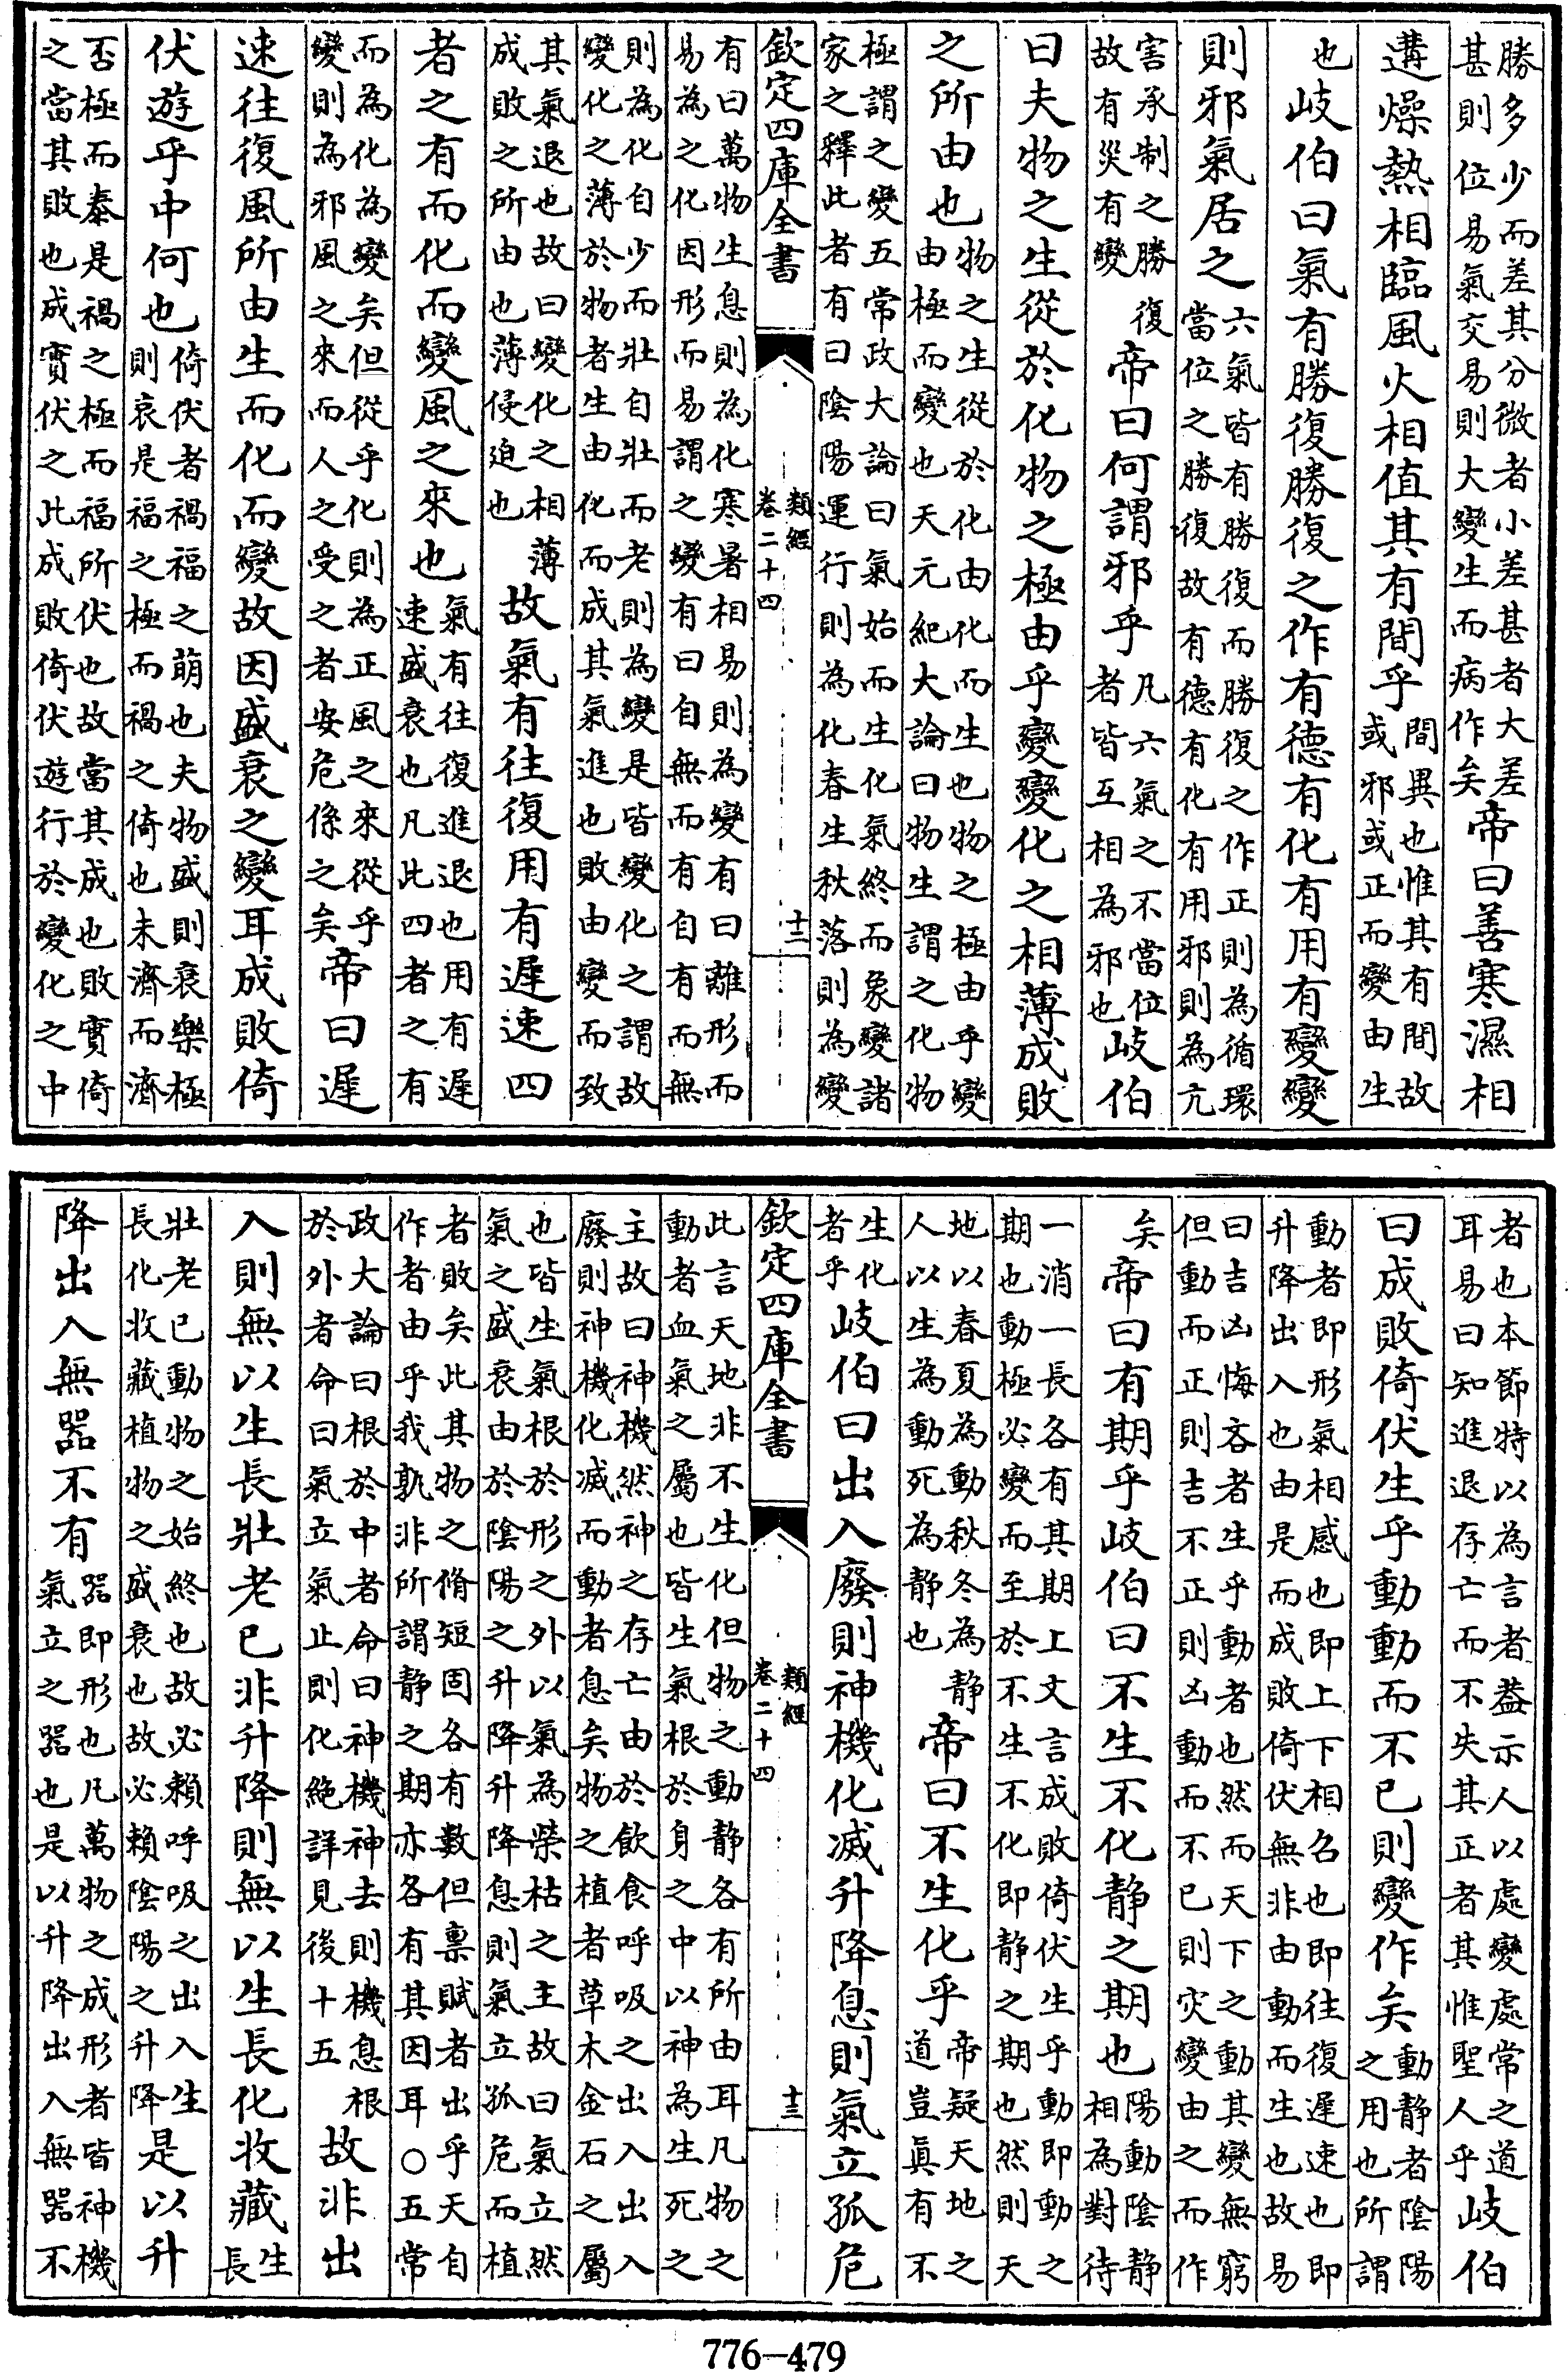 勝多少而差其分微者小差甚者大差
甚則位易氣交易則大變生而病作矣
帝曰善寒濕相
遘燥熱相臨風火相值其有間乎
間異也惟其有間故
或邪或正而變由生
也
岐伯曰氣有勝復勝復之作有德有化有用有變變
則邪氣居之
六氣皆有勝復而勝復之作正則為循環
當位之勝復故有德有化有用邪則為亢
害承制之勝復
故有災有變
帝曰何謂邪乎
凡六氣之不當位
者皆互相為邪也
岐伯
曰夫物之生從於化物之極由乎變變化之相薄成敗
之所由也
物之生從於化由化而生也物之極由乎變
由極而變也天元紀大論曰物生謂之化物
極謂之變五常政大論曰氣始而生化氣終而象變諸
家之釋此者有曰陰陽運行則為化春生秋落則為變
欽定四庫全書
類經
卷二十四
十二
有曰萬物生息則為化寒暑相易則為變有曰離形而
易為之化因形而易謂之變有曰自無而有自有而無
則為化自少而壯自壯而老則為變是皆變化之謂故
變化之薄於物者生由化而成其氣進也敗由變而致
其氣退也故曰變化之相薄
成敗之所由也薄侵迫也
故氣有往復用有遲速四
者之有而化而變風之來也
氣有往復進退也用有遲
速盛衰也凡此四者之有
而為化為變矣但從乎化則為正風之來從乎
變則為邪風之來而人之受之者安危係之矣
帝曰遲
速往復風所由生而化而變故因盛衰之變耳成敗倚
伏遊乎中何也
倚伏者禍福之萌也夫物盛則衰樂極
則哀是福之極而禍之倚也未濟而濟
否極而泰是禍之極而福所伏也故當其成也敗實倚
之當其敗也成實伏之此成敗倚伏遊行於變化之中
者也本節特以為言者葢示人以處變處常之道
耳易曰知進退存亡而不失其正者其惟聖人乎
岐伯
曰成敗倚伏生乎動動而不已則變作矣
動靜者陰陽
之用也所謂
動者即形氣相感也即上下相召也即往復遲速也即
升降出入也由是而成敗倚伏無非由動而生也故易
曰吉凶悔吝者生乎動者也然而天下之動其變無窮
但動而正則吉不正則凶動而不已則灾變由之而作
矣
帝曰有期乎岐伯曰不生不化靜之期也
陽動陰靜
相為對待
一消一長各有其期上文言成敗倚伏生乎動即動之
期也動極必變而至於不生不化即靜之期也然則天
地以春夏為動秋冬為靜
人以生為動死為靜也
帝曰不生化乎
帝疑天地之
道豈真有不
生化
者乎
岐伯曰出入廢則神機化滅升降息則氣立孤危
欽定四庫全書
類經
卷二十四
十三
此言天地非不生化但物之動靜各有所由耳凡物之
動者血氣之屬也皆生氣根於身之中以神為生死之
主故曰神機然神之存亡由於飲食呼吸之出入出入
廢則神機化滅而動者息矣物之植者草木金石之屬
也皆生氣根於形之外以氣為榮枯之主故曰氣立然
氣之盛衰由於陰陽之升降升降息則氣立孤危而植
者敗矣此其物之脩短固各有數但禀賦者出乎天自
作者由乎我孰非所謂靜之期亦各有其因耳○五常
政大論曰根於中者命曰神機神去則機息根
於外者命曰氣立氣止則化絶詳見後十五
故非出
入則無以生長壯老已非升降則無以生長化收藏
生
長
壯老已動物之始終也故必賴呼吸之出入生
長化收藏植物之盛衰也故必賴陰陽之升降
是以升
降出入無器不有
器即形也凡萬物之成形者皆神機
氣立之器也是以升降出入無器不
776-479